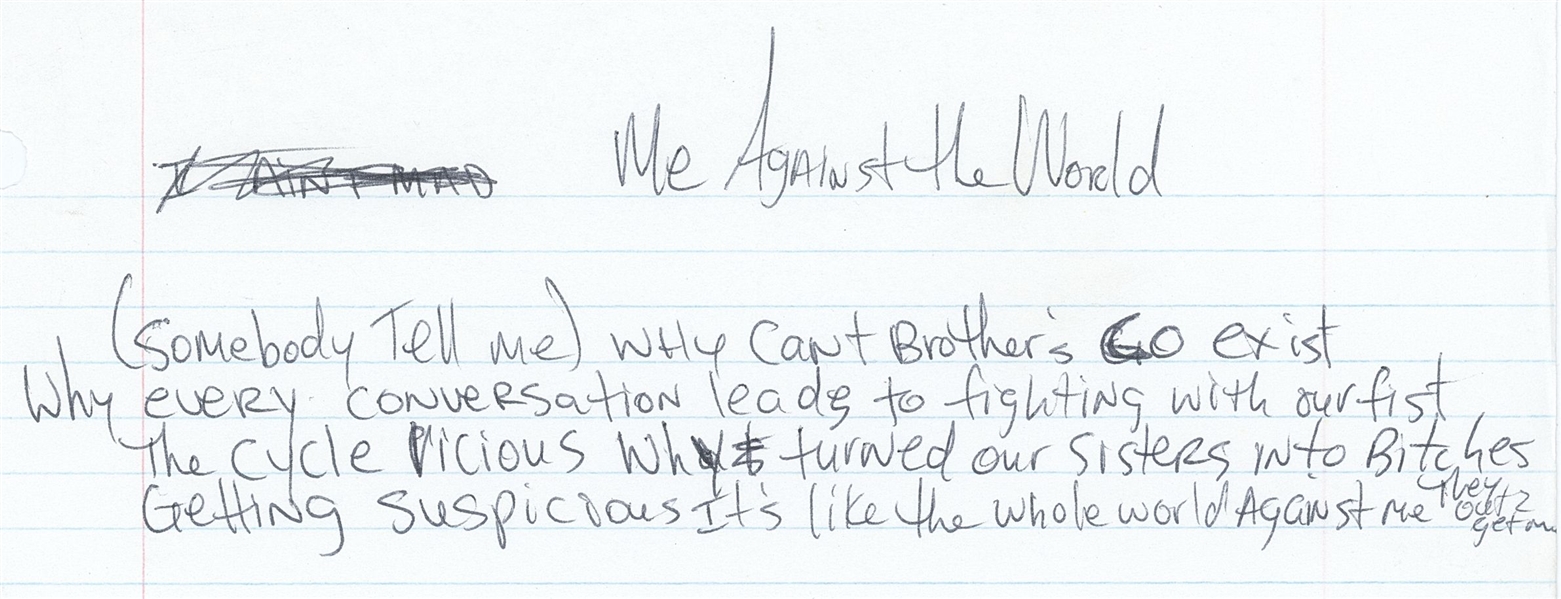 I AIN'T MAD Me Against the World
(Somebody Tell me) Why Can't Brother's Co exist
Why every conversation leads to fighting with our fist
The Cycle Vicious What turned our Sisters into Bitches
Getting suspicious It's like the whole world Against me they out 2 get me